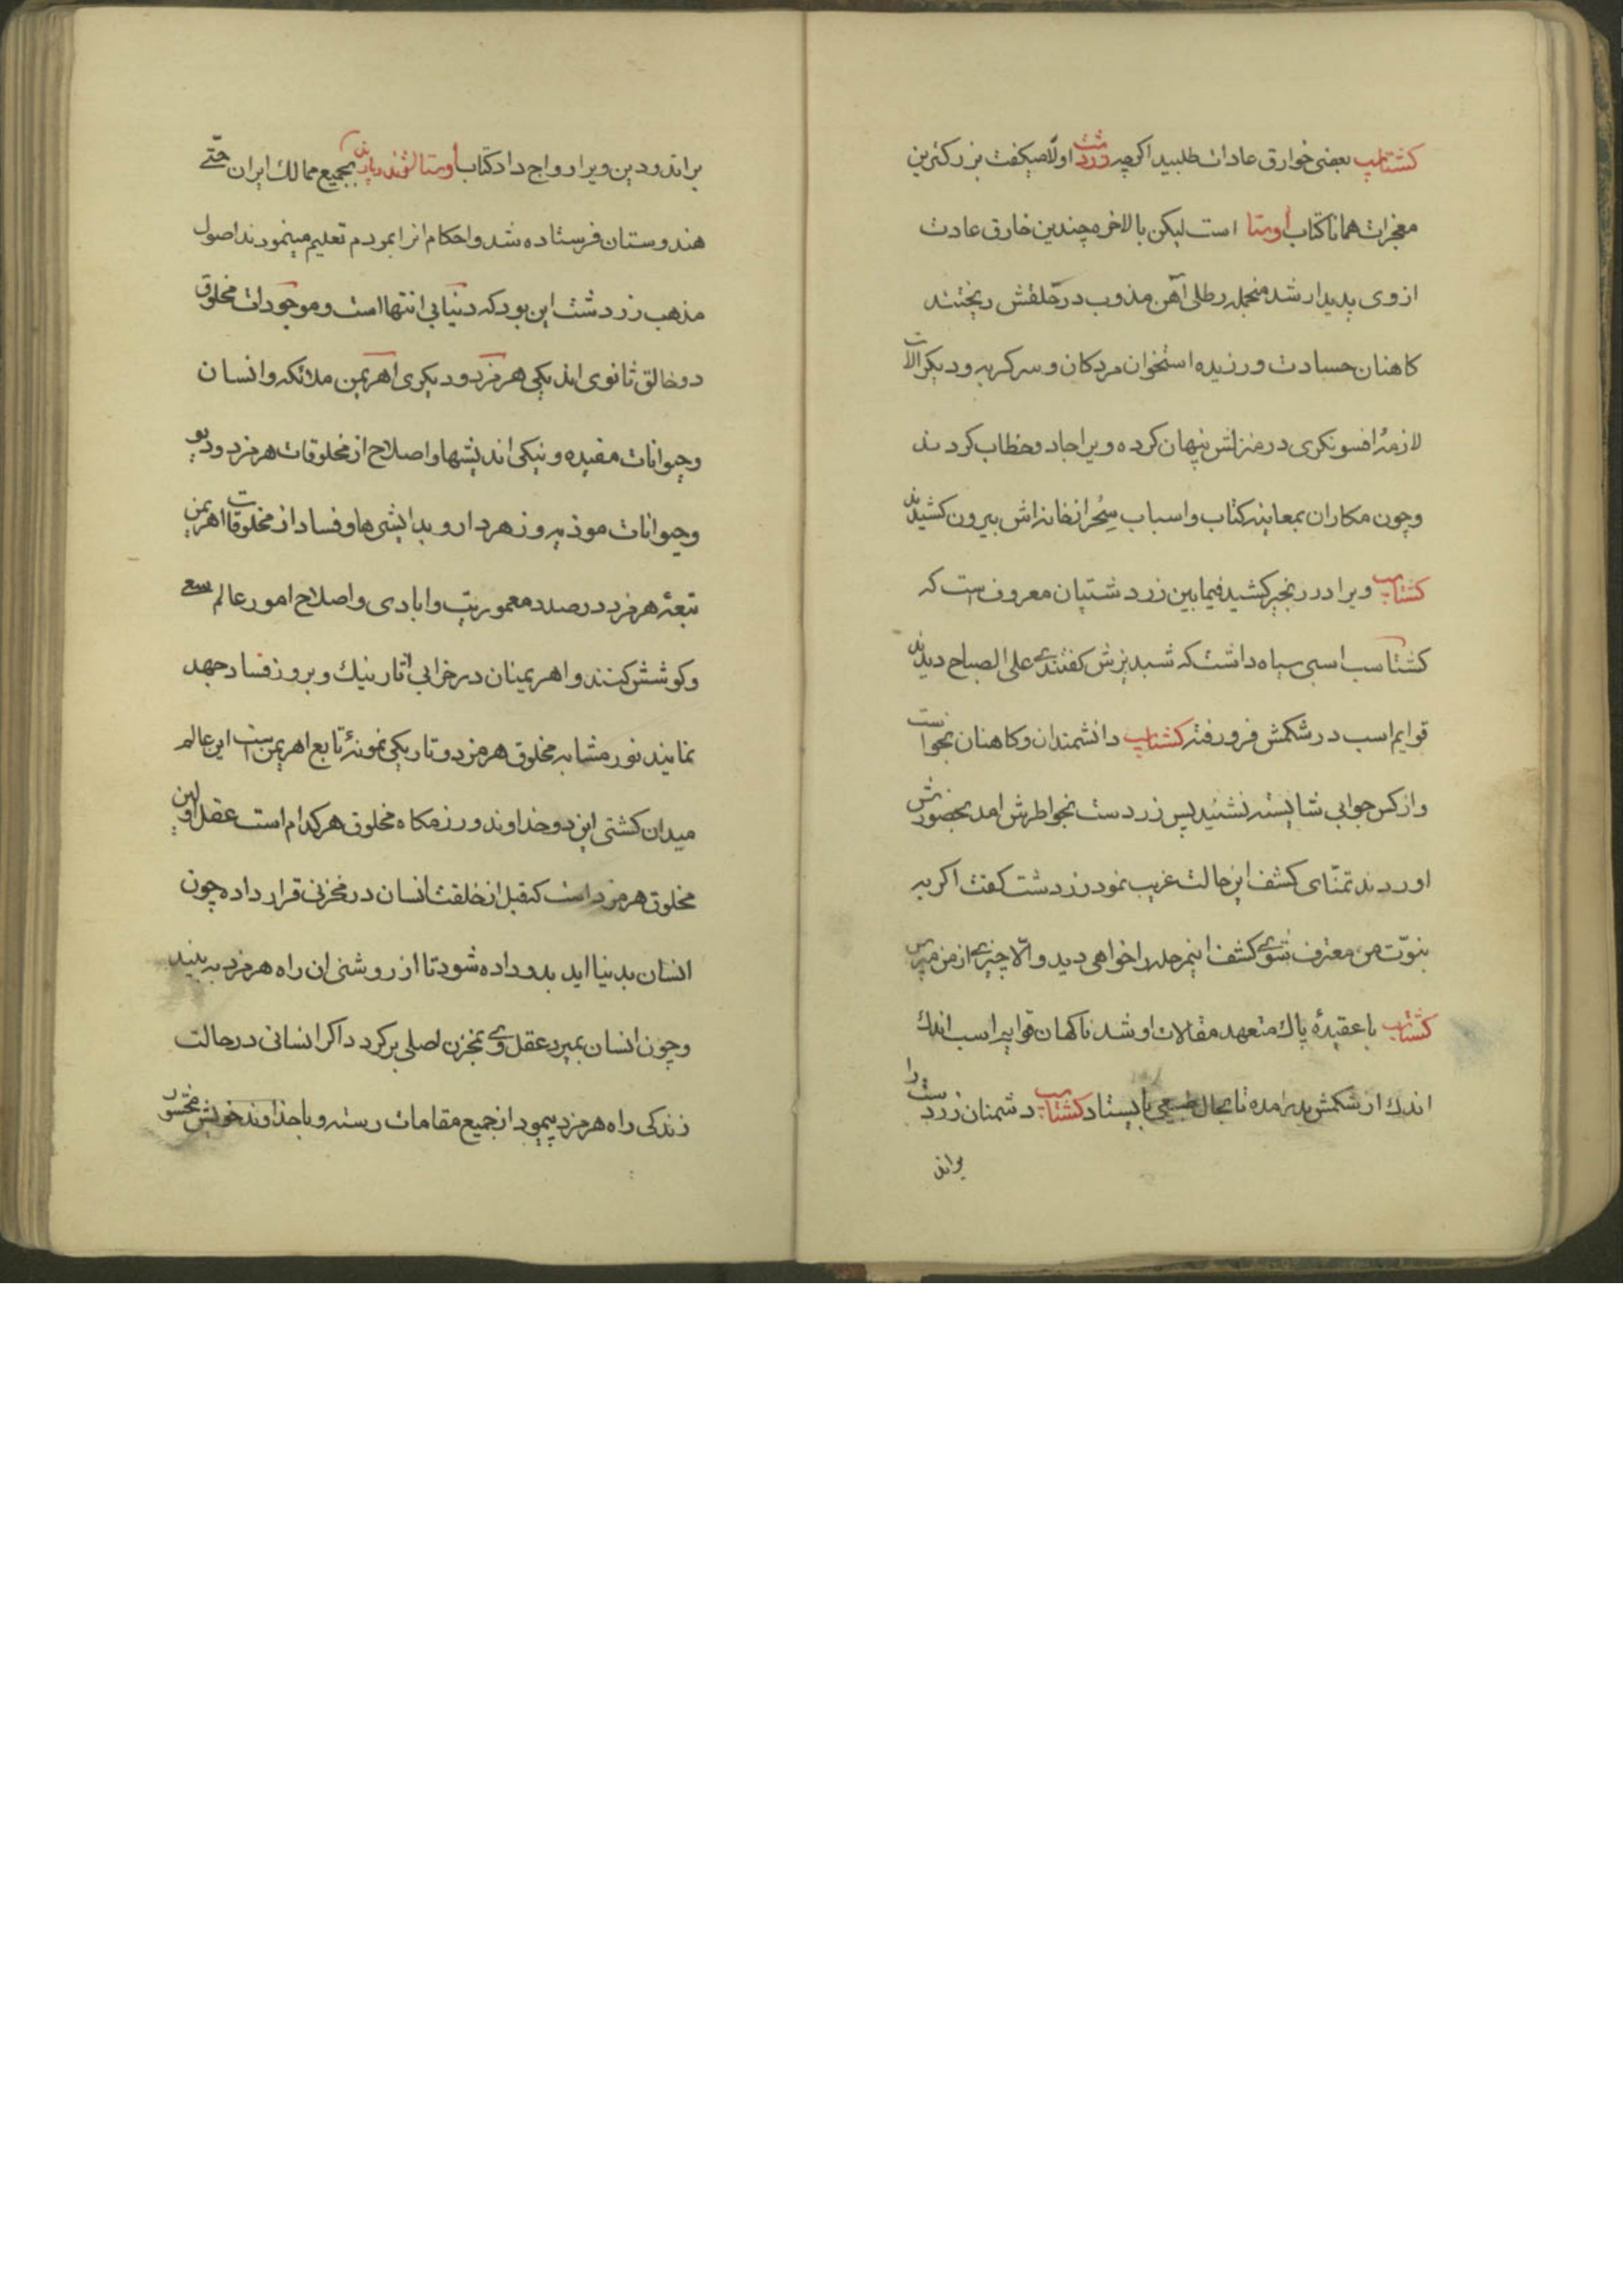 کشتاسپ بعضی خوارق عادات طلبید اکرچه زردشت اولا میکفت بزرکترین
معجزات همانا کتاب اوستا است لیکن بالاخره چندین خارق عادت
ازوی پدیدار شد منجمله رطلی آهن مذوب در حلقش ریختند
کاهنان حسادت ورزیده استخوان مردکان و سرکربه و دیکر الات
لازمهٔ افسونکری در منزلش پنهان کرده ویرا جادو خطاب کردند
وچون مکاران بمعاینه کتاب و اسباب سِحْر از خانه اش بیرون کشیدند
کشتاسب ویرا در زنجیر کشید فیما بین زردشتیان معروفست که
کشتاسب اسبی سیاه داشت که شبدیزش کفتندی علی الصباح دیدند
قوایم اسب در شکمش فرو رفته کشتاسب دانشمندان و کاهنان بخواست
و از کس جوابی شایسته نشنید پس زردست بخواطرش امد بحضورش
اوردند تمنّای کشف این حالت غریب نمود زردشت کفت اکر به
بنوّت من معترف شوی کشف اینمرحله را خواهی دید والّا چیزی از من مپرس
کشتاسب با عقیدهٔ پاك متعهد مقالات او شد ناکهان قوایم اسب اندك
اندك از شکمش بدر امده تا بحال طبیعی بایستاد کشتاسب دشمنان زردست را
براند
براند و دین ویرا رواج داد کتاب اوستا بجمیع ممالك ایران حتّی
هندوستان فرستاده شد و احکام انرا بمردم تعلیم مینمودند اصول
مذهب زردشت این بود که دنیا بی انتها است و موجودات مخلوق
دو خالق ثانوی اند یکی هرمزد و دیکری اهریمن ملائکه و انسان
و حیوانات مفیده و نیکی اندیشها و اصلاح از مخلوقات هرمزد و دیو
و حیوانات موذیه و زهردار و بداندیشی ها و فساد از مخلوقات اهریمن
تبعهٔ هرمزد در صدد معموریت و ابادی و اصلاح امور عالم سعی
و کوشش کنند و اهریمنان در خرابی آثار نیك و بروز فساد جهد
نمایند نور مشابه مخلوق هرمزد و تاریکی نمونهٔ تابع اهریمن است این عالم
میدان کشتی این دو خداوند و رزمکاه مخلوق هر کدام است عقل اولین
مخلوق هرمزد است که قبل از خلقت انسان در مخزنی قرار داده چون
انسان بدنیا اید بدو داده شود تا از روشنی ان راه هرمزد به بیند
و چون انسان بمیرد عقل وی بمخزن اصلی برکردد اکر انسانی در حالت
زندکی راه هرمزد پیمود از جمیع مقامات رسته و با خداوند خویش محشور